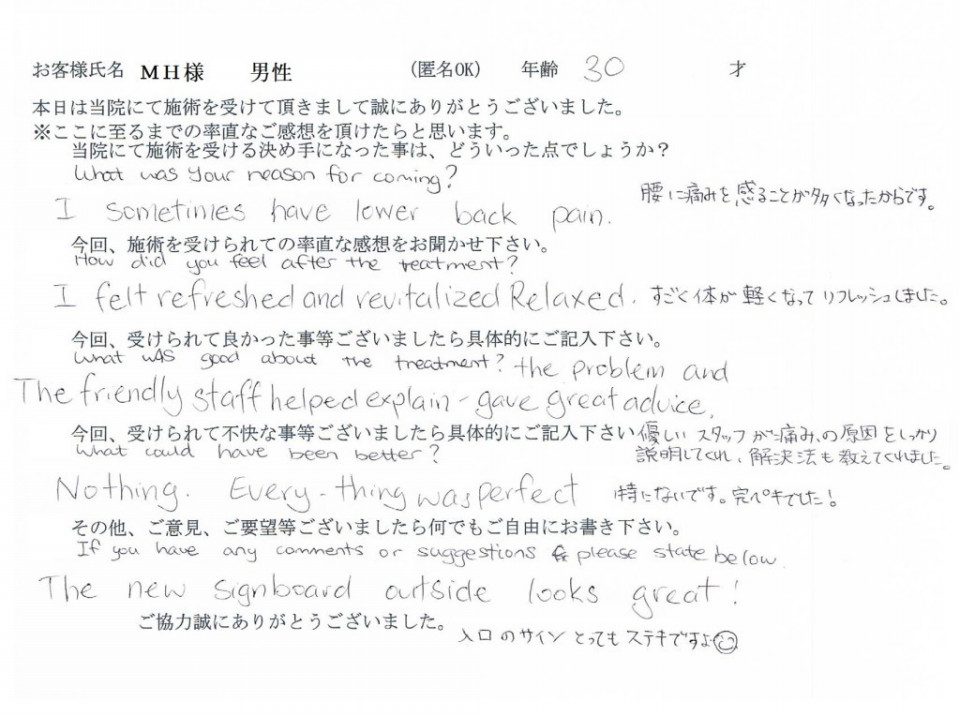 お客様氏名 MH様 男性 (匿名OK) 年齢 30 才
本日は当院にて施術を受けて頂きまして誠にありがとうございました。
※ここに至るまでの率直なご感想を頂けたらと思います。
当院にて施術を受ける決め手になった事は、どういった点でしょうか?
What was your reason for coming?
腰に痛みを感ることが多くなったからです。
I sometimes have lower back pain.
今回、施術を受けられての率直な感想をお聞かせ下さい。
How did you feel after the treatment?
I felt refreshed and revitalized Relaxed. すごく体が軽くなってリフレッシュしました。
今回、受けられて良かった事等ございましたら具体的にご記入下さい。
What was good about the treatment? the problem and
The friendly staff helped explain - gave great advice.
今回、受けられて不快な事等ございましたら具体的にご記入下さい
What could have been better?
優しいスタッフが痛みの原因をしっかり
説明してくれ、解決法も教えてくれました。
Nothing. Every-thing was perfect 特にないです。完ペキでした!
その他、ご意見、ご要望等ございましたら何でもご自由にお書き下さい。
If you have any comments or suggestions please state below.
The new signboard outside looks great!
ご協力誠にありがとうございました。
入口のサインとってもステキですよ☺